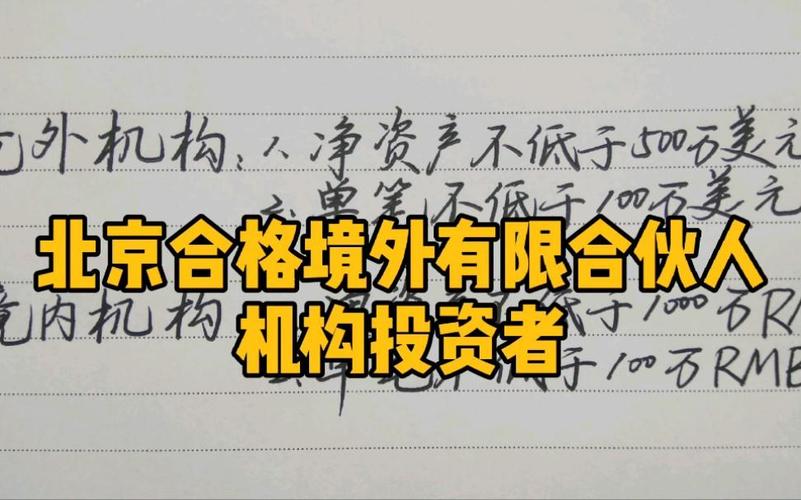 外机构：1、净资产不低于500万美元
2、单笔不低于100万美元
北京合格境外有限合伙人
境内机构 低于1000万R
机构投资者
低于100万RMB